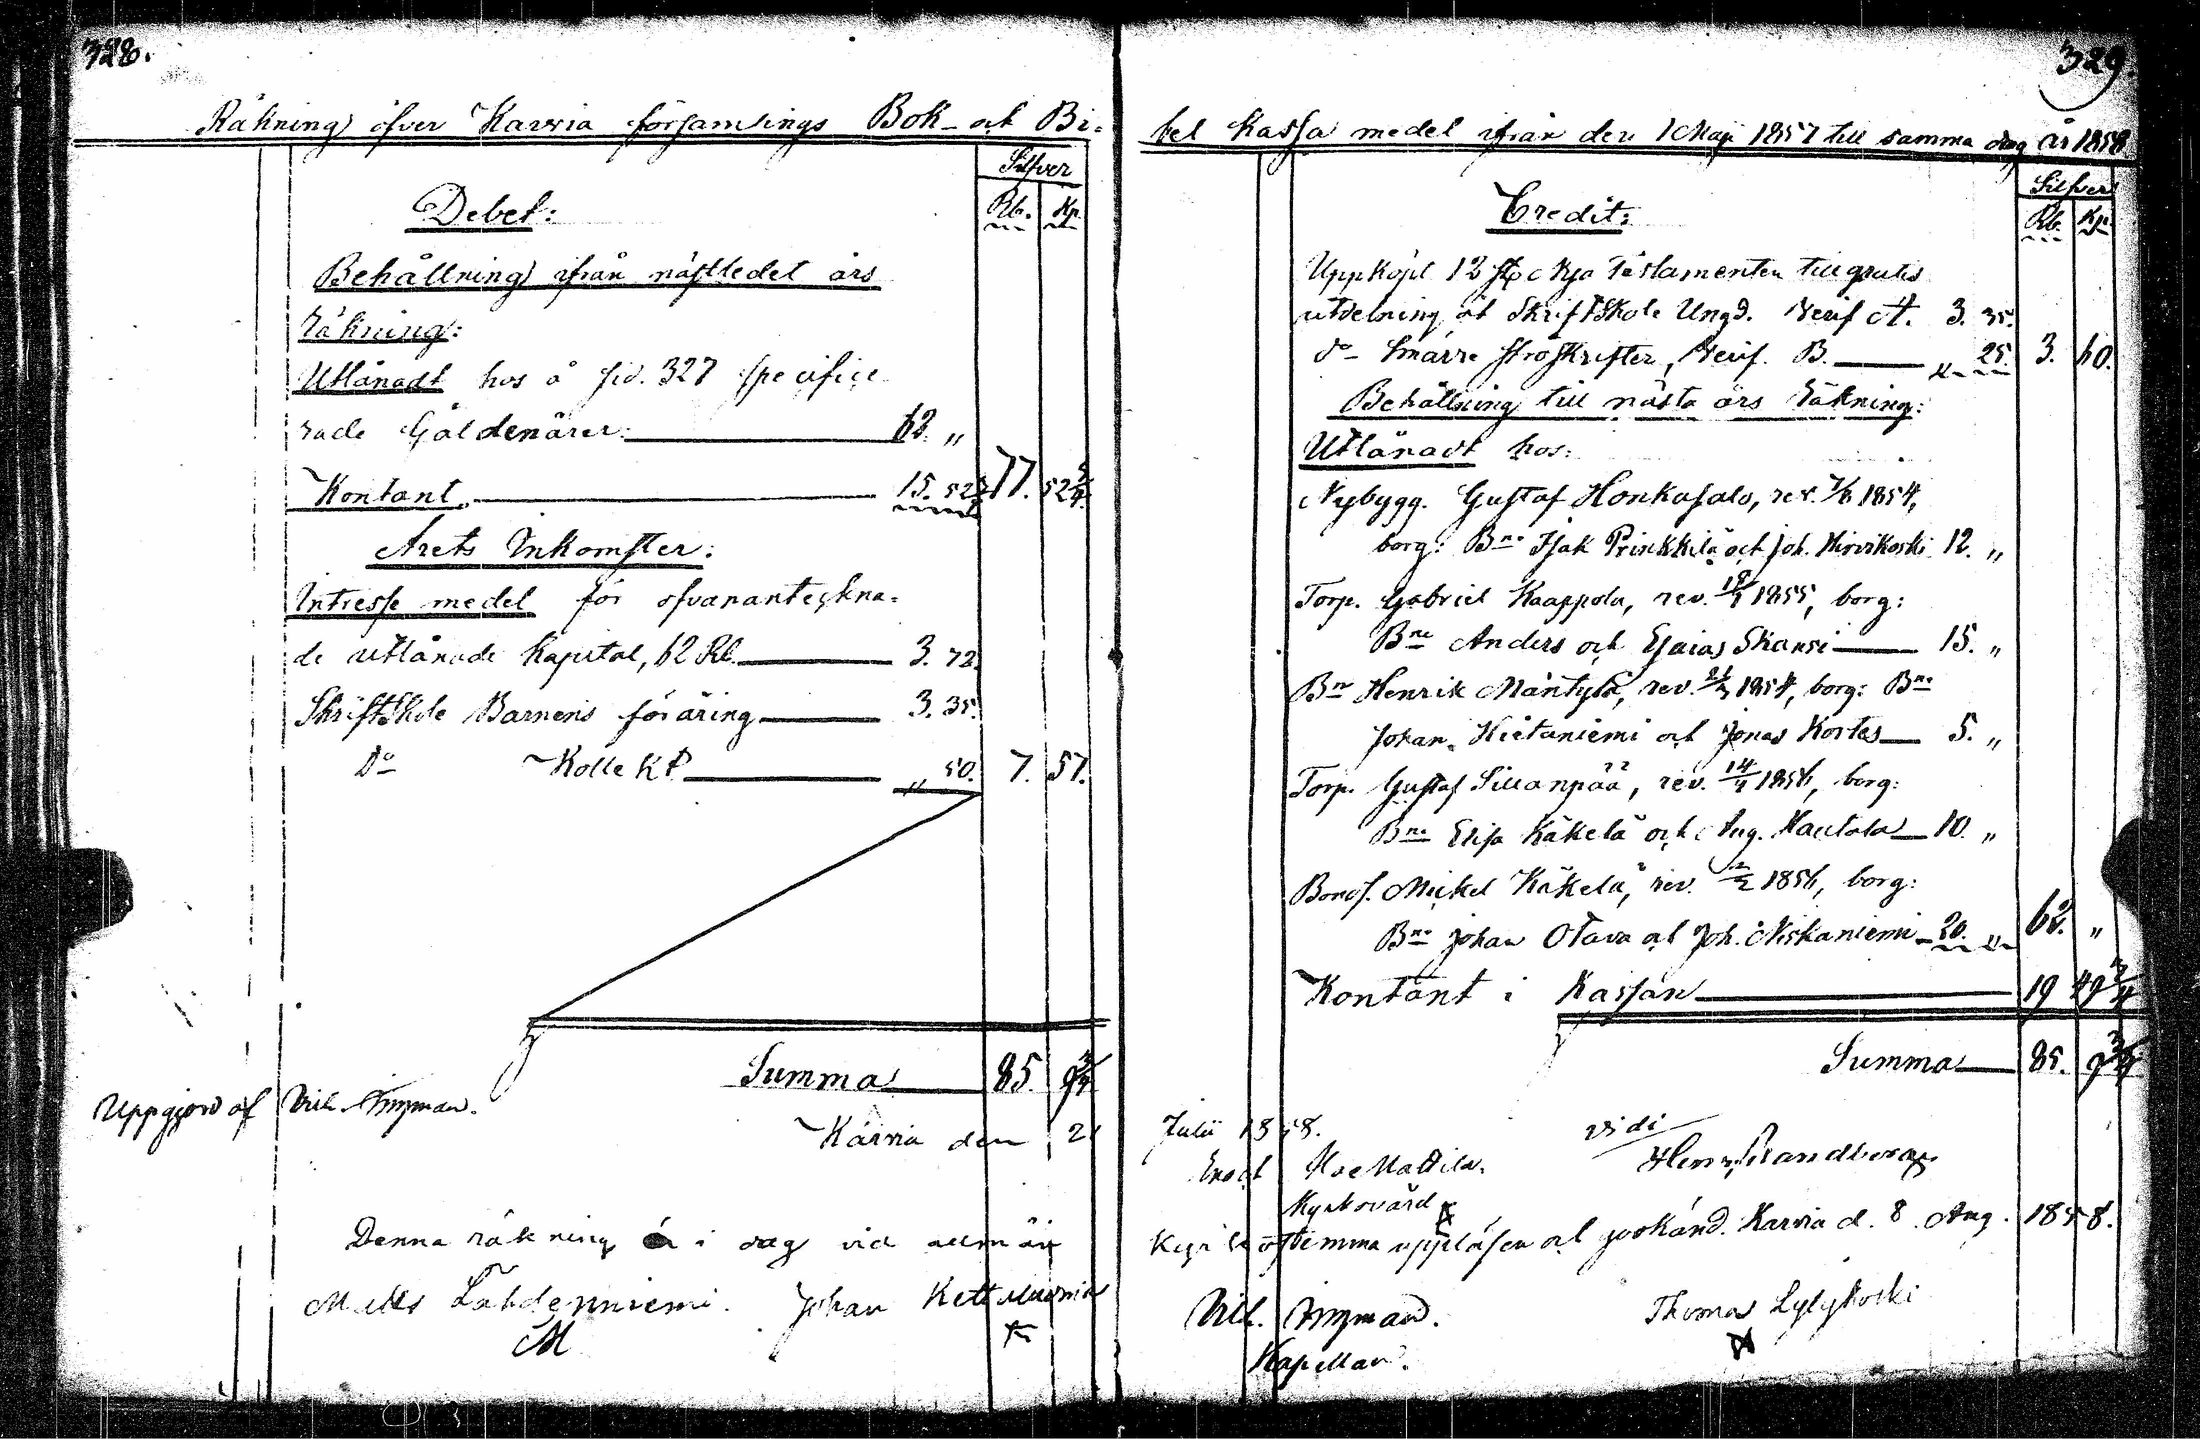 328.
Räkning öfver Karvia församlings Bok- och Bi-
Silfver
Debet: Rb. Kp.
Behållning ifrån nästledet års
räkning:
Utlånadt hos å sid. 327 specifice
rade Gäldenärer: 62. "
Kontant. 15. 52 3/4 77. 52 3/4
Årets Inkomster:
Intresse medel för ofvanantekna-
de utlånade Kapital, 62 Rb. 3. 72.
Skriftskole Barnens föräring 3. 35.
Do Kollekt " 50. 7. 57.
Summa 85. 9 3/4
Uppgjord af Vilh.
Karvia den 21
Denna räkning är i dag vid allmän
Matts Lähdenniemi. Johan
M
329.
bel Kassa medel ifrån den 1 Maji 1857 till samma dag år 1858
Silfver
Credit: Rb. Kp.
Uppköpt 12 st. Nya Testamenten till gratis
utdelning åt Skriftskole Ungd. Verif A. 3. 35.
do Smärre ströskrifter, Verif. B. " 25. 3. 60.
Behållning till nästa års räkning:
Utlånadt hos:
Nybygg. Gustaf Honkasalo, rev. 1854,
borg: Bne Isak Prinkkilä och Joh. Hirvikoski 12. "
Torp. Gabriel Kaappola, rev. 1855, borg:
Bne Anders och Esaias Skansi 15. "
Bn Henrik Mäntylä, rev. 1854, borg: Bne
Johan Kietaniemi och Jonas Kortes 5. "
Torp. Gustaf Sillanpää, rev. 14/4 1856, borg:
Bne Elisa Käkelä och Aug. Hautala 10. "
Bonds. Mickel Käkelä, rev. 1856, borg:
Bne Johan Otava och Joh. Niskaniemi 20. " 62. "
Kontant i Kassan 19 49 3/4
Summa 85. 9 3/4
Julii 1858. vidi
Enoch Henr. Strandberg
Kyrkovärd
Kyrkostämma uppläsen och godkänd. Karvia d. 8. Aug. 1858.
Vilh. Thomas Lylykoski
Kapellan.